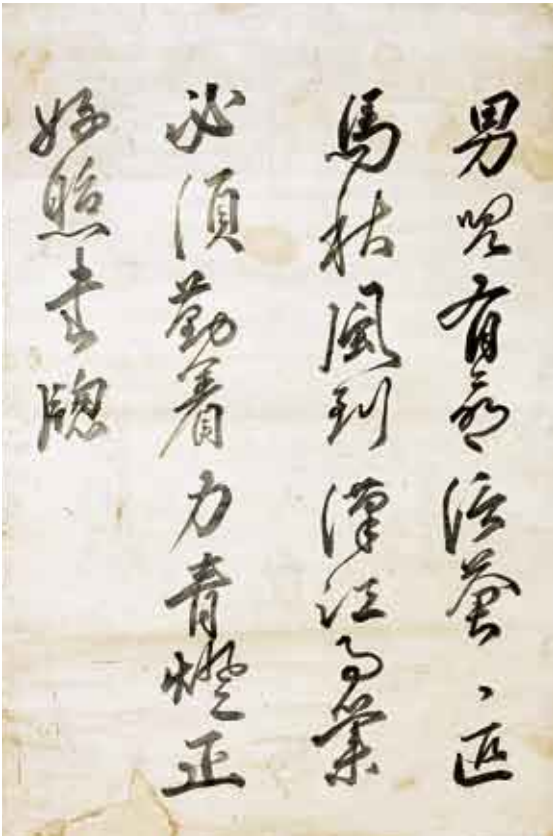 男兒有蒼〻匹
馬秋風到漢江事業
必須勤着力青燈正
好照書牕